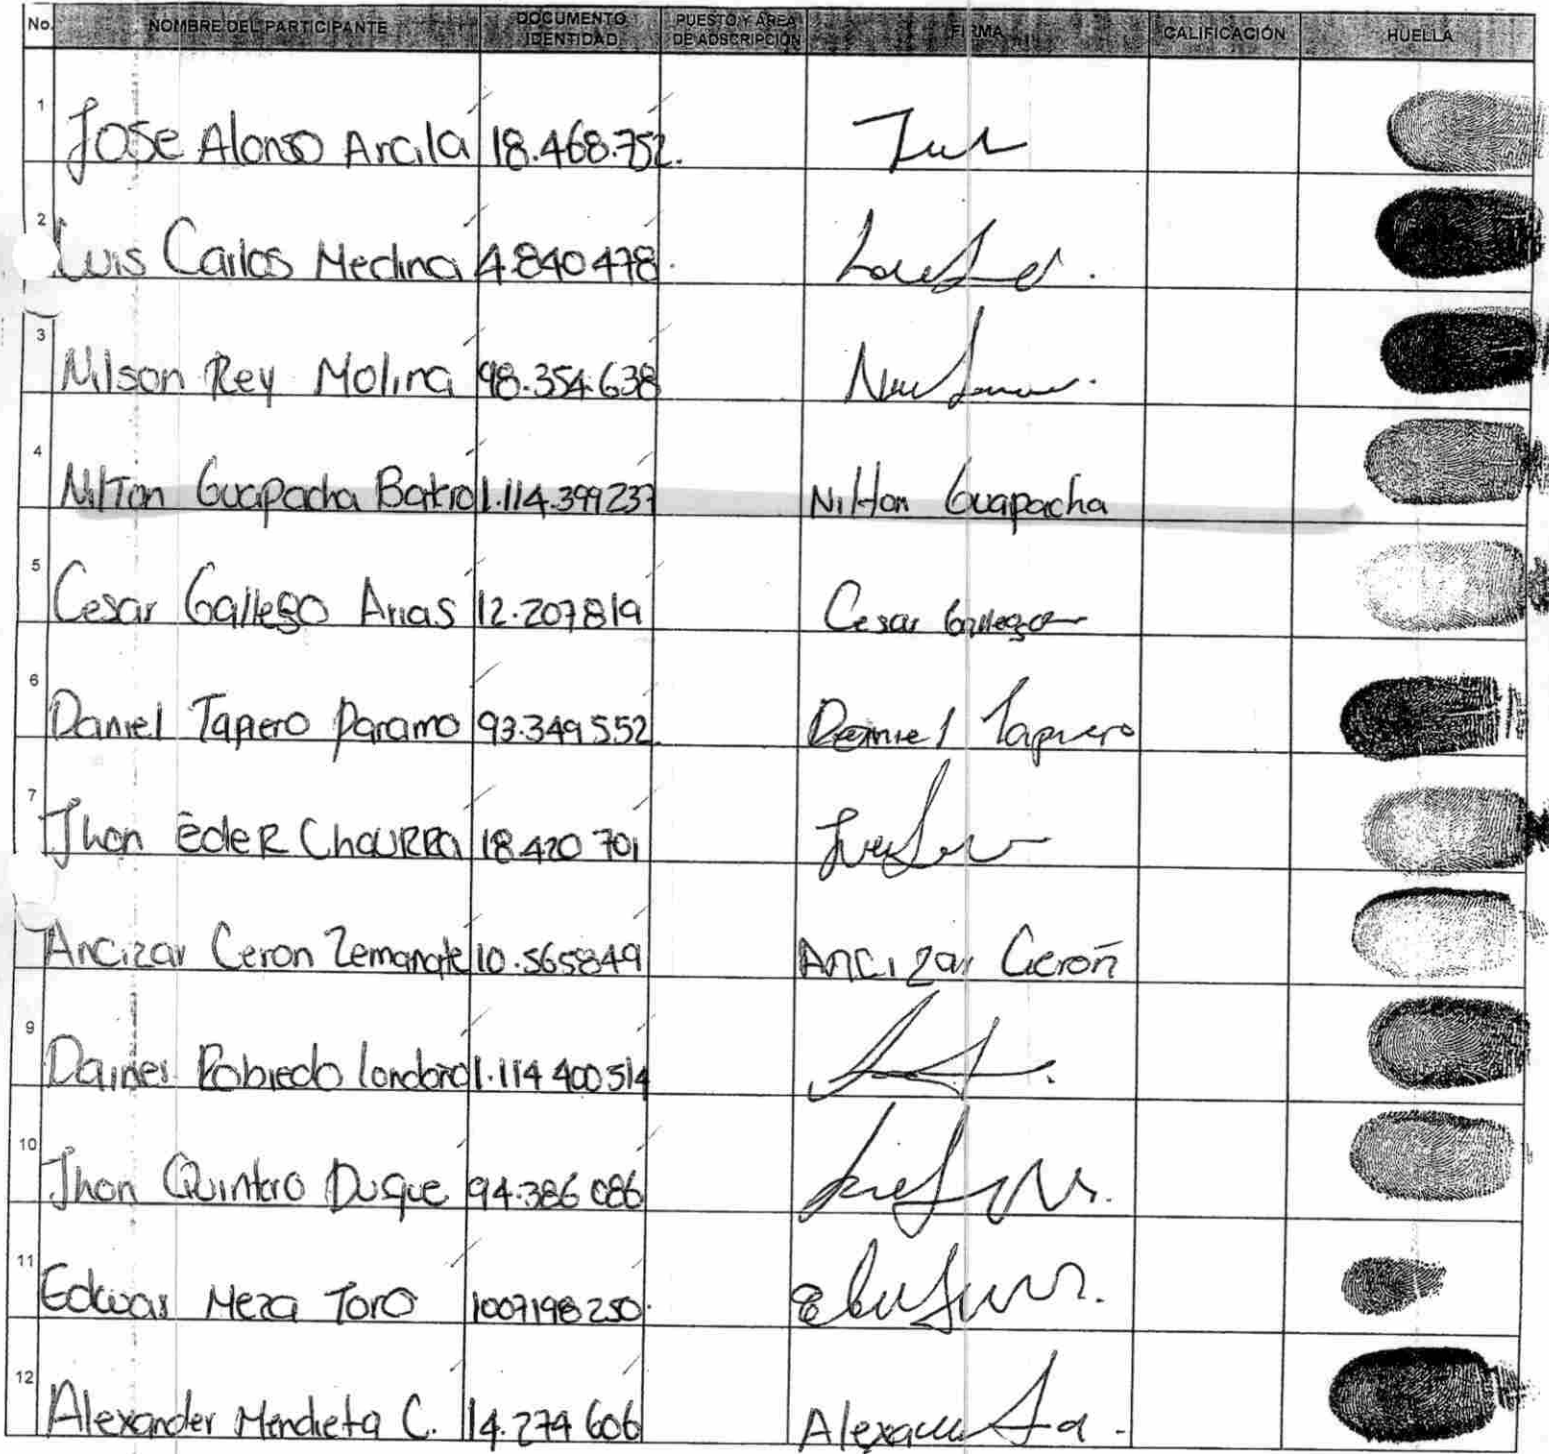 No. NOMBRE DEL PARTICIPANTE DOCUMENTO IDENTIDAD PUESTO Y AREA DE ADSCRIPCIÓN FIRMA CALIFICACIÓN HUELLA
1 Jose Alonso Arcila 18.468.752.
2 Luis Carlos Medina 4.840478.
3 Nilson Rey Molina 98.354.638
4 Nilton Guapacha Batero 1.114.399237 Nilton Guapacha
5 Cesar Gallego Arias 12.207819 Cesar Gallego
6 Daniel Tapero Paramo 93.349552 Daniel Tapiero
7 Jhon EdeR ChaURRa 18.420 701
Ancizar Ceron Zemanate 10.565849 Ancizar Ceron
9 Robledo Londono 1.114 400514
10 Jhon Quintero Duque 94.386 086
11 Edwar Meza Toro 1007198250.
12 Alexander Mendieta C. 14.274 606